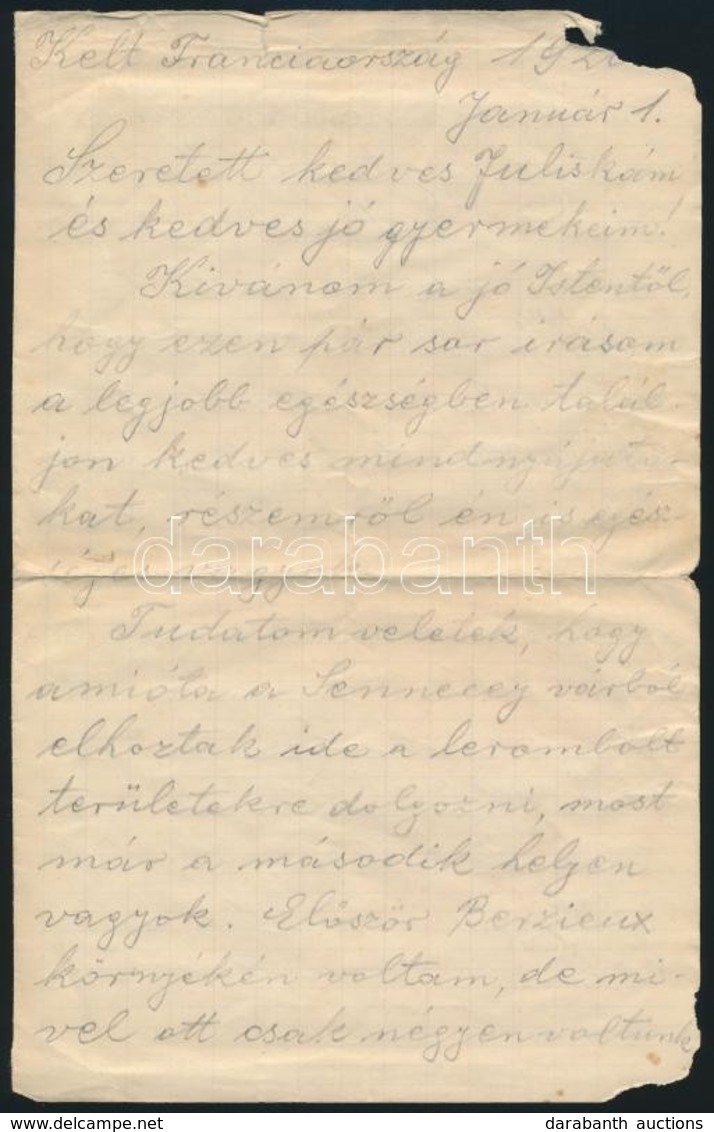 Kelt Franciaország 192
Január 1.
Szeretett kedves Juliskám
és kedves jó gyermekeim!
Kivánom a jó Istentől,
hogy ezen pár sor irásom
a legjobb egészségben talál-
jon kedves mindnyájato-
kat, részemről én is egész-
séges vagyok.
Tudatom veletek, hogy
amióta a Sennecey várból
elhoztak ide a lerombolt
területekre dolgozni, most
már a második helyen
vagyok. Először Berzieux
környékén voltam, de mi-
vel ott csak négyen voltunk
darabanth
darabanth auctions